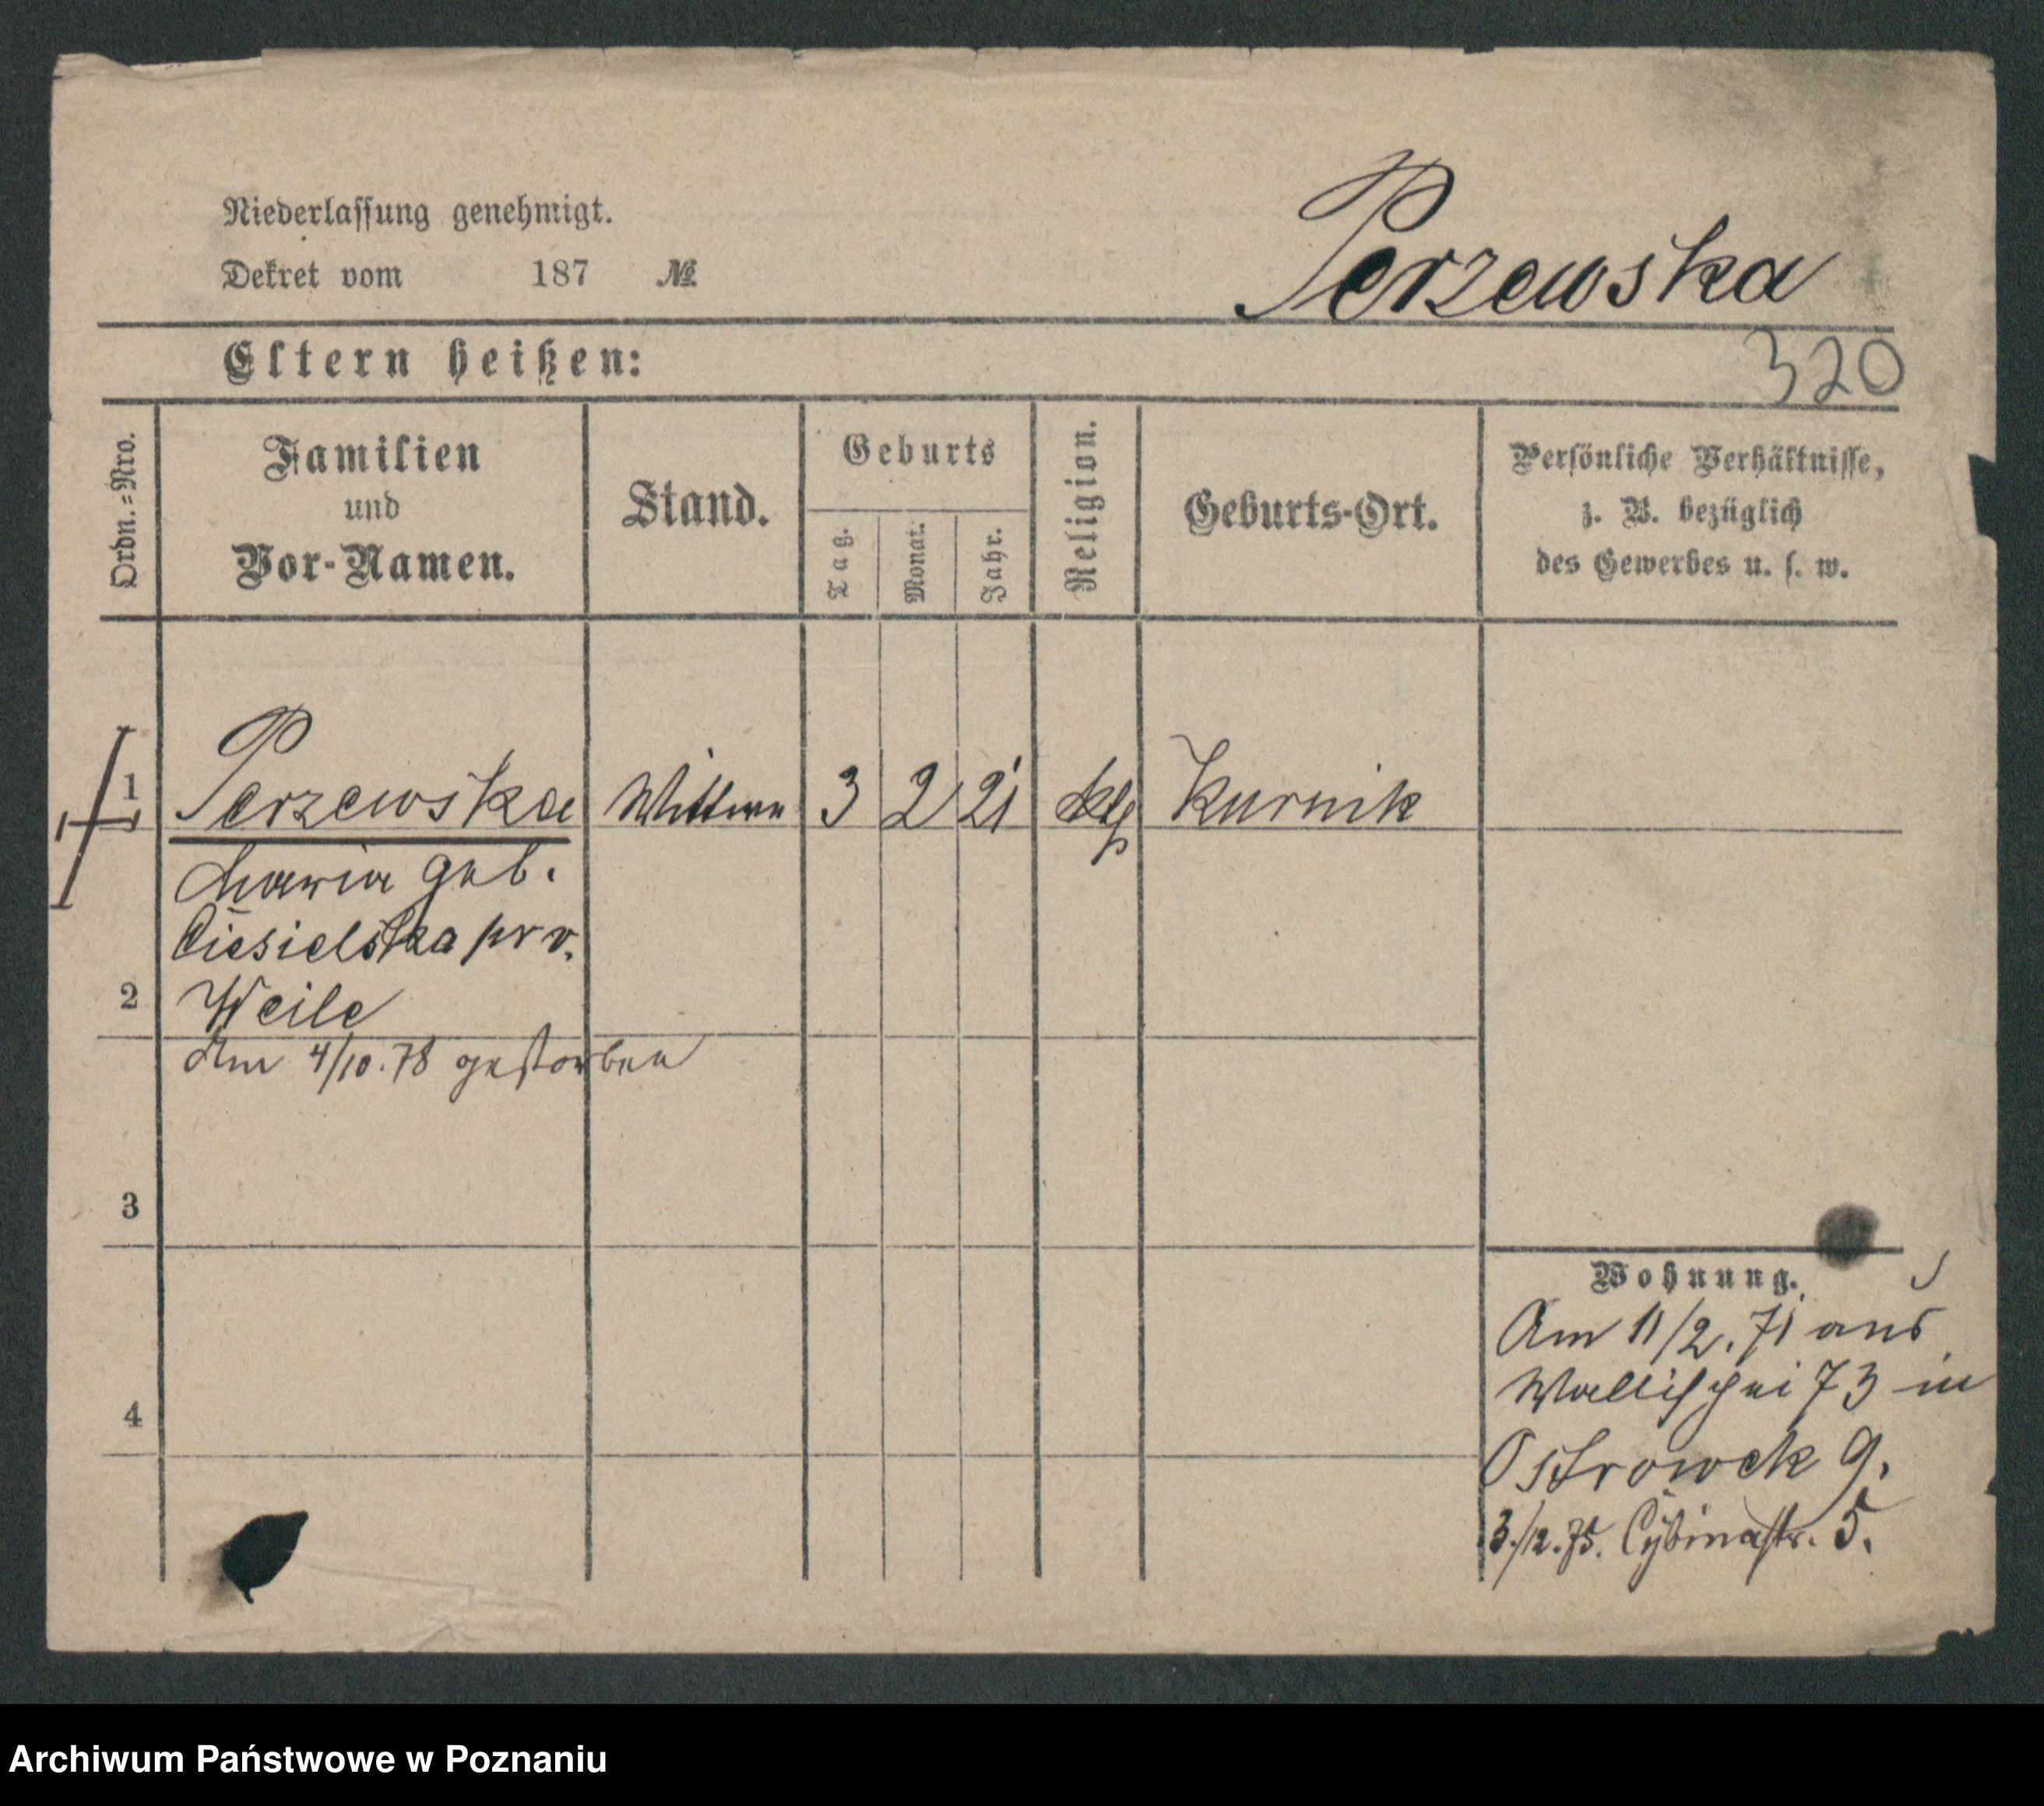 Niederlassung genehmigt.
Dekret vom 187 №
Perzewska
Eltern heißen:
320
Ordn.=Nro.
Familien
und
Vor-Namen.
Stand.
Geburts
Tag.
Monat.
Jahr.
Religion.
Geburts-Ort.
Persönliche Verhältnisse,
z. B. bezüglich
des Gewerbes u. s. w.
1 Perzewska Wittwe 3 2 21 Kurnik
Maria geb.
Ciesielska pr v.
2 Weile
Am 4/10.78 gestorben
3
4
Wohnung.
Am 11/2.71 aus
Wallischei 73 in
Ostrowek 9.
3./12.75. Cybinastr. 5.
Archiwum Państwowe w Poznaniu